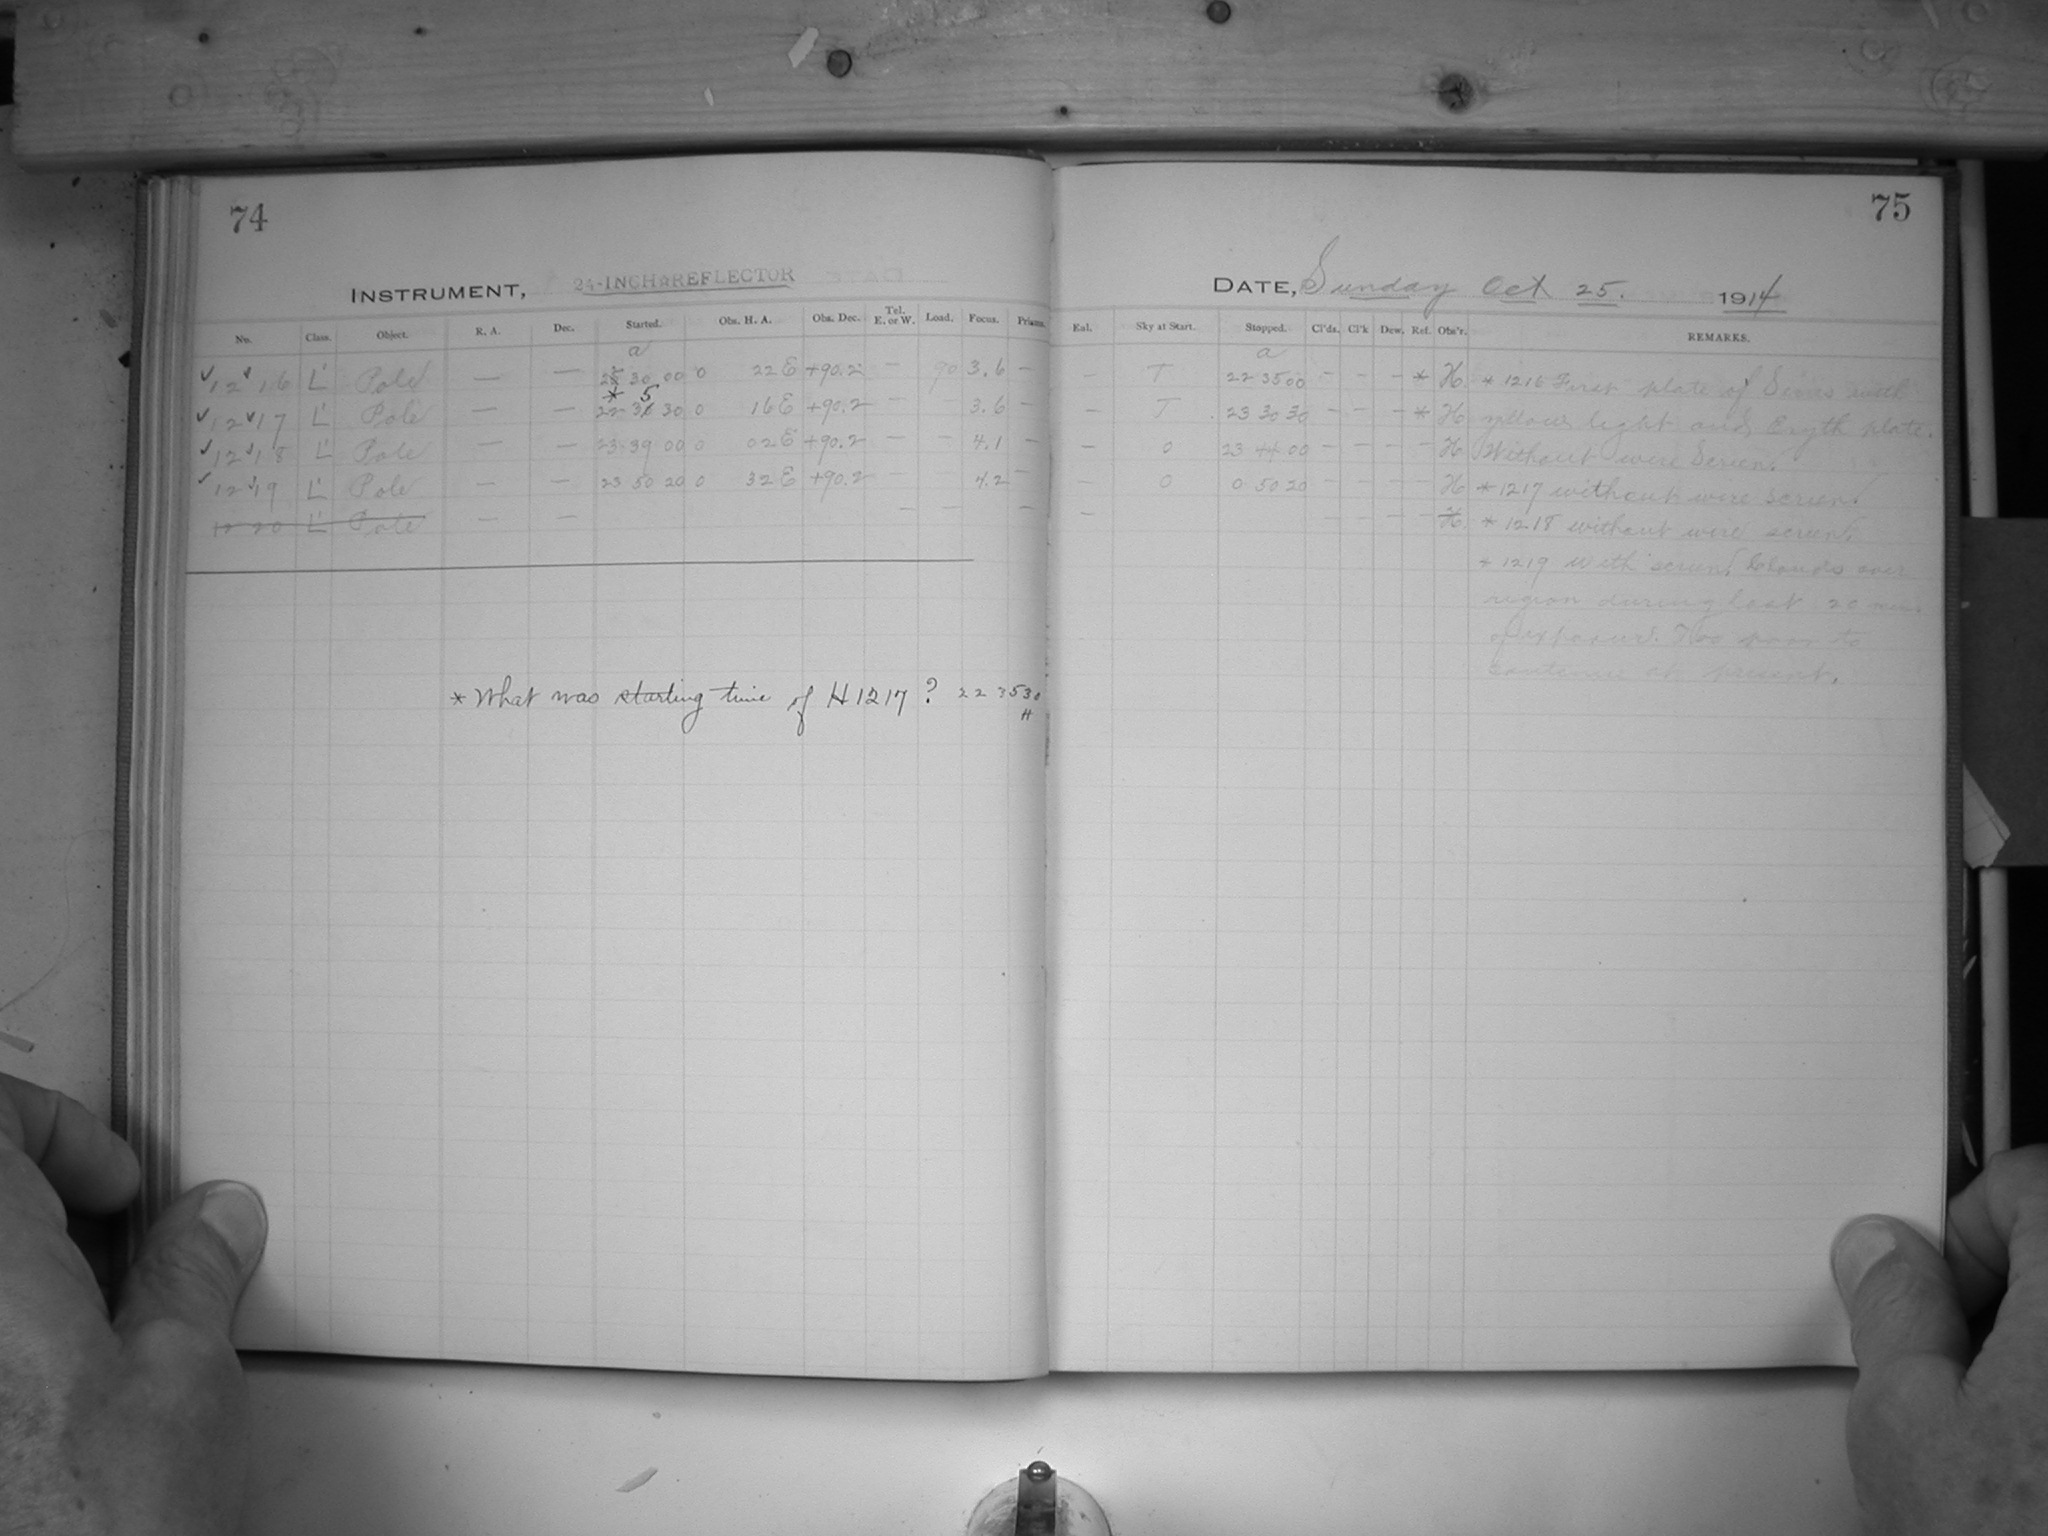 74
INSTRUMENT, 24-INCH REFLECTOR
No. Class. Object. R. A. Dec. Started. Obs. H. A. Obs. Dec. Tel. E. or W. Load. Focus. Prisms.
a
✓12✓16 L' Pole — — 22 30 00 0 22 E +90.2 — 90 3.6 —
* 5
✓12✓17 L' Pole — — 22 30 0 16 E +90.2 — — 3.6 —
✓12✓18 L' Pole — — 23 39 00 0 02 E +90.2 — — 4.1 —
✓12✓19 L' Pole — — 23 50 20 0 32 E +90.2 — — 4.2 —
12 20 L' Pole — — — — —
* What was starting time of H 1217 ? 22 35 30
H
75
DATE, Sunday Oct 25. 1914
Eal. Sky at Start. Stopped. Cl'ds. Cl'k Dew. Ref. Obs'r. REMARKS.
a
— T 22 35 00 — — — * H * 1216 First plate of Series with
— T 23 30 30 — — — * H yellow light and Eryth plate.
— 0 23 44 00 — — — — H Without wire Screen.
— 0 0 50 20 — — — — H * 1217 without wire screen.
— — — — — H * 1218 without wire screen.
* 1219 with screen. Clouds over
region during last 20 min.
of exposure. Too poor to
continue at present.